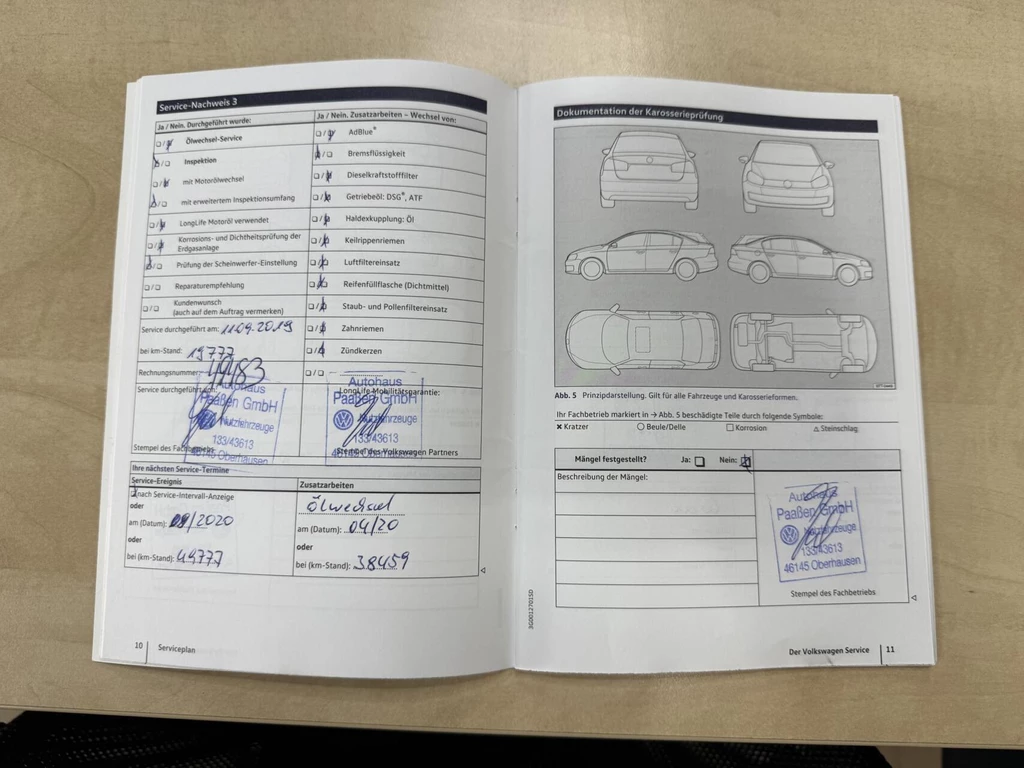 Service-Nachweis 3
Ja / Nein. Durchgeführt wurde:
Ölwechsel-Service
Inspektion
mit Motorölwechsel
mit erweitertem Inspektionsumfang
LongLife Motoröl verwendet
Korrosions- und Dichtheitsprüfung der
Erdgasanlage
Prüfung der Scheinwerfer-Einstellung
Reparaturempfehlung
Kundenwunsch
(auch auf dem Auftrag vermerken)
Service durchgeführt am: 11.09.2019
bei km-Stand: 19777
Rechnungsnummer:
Service durchgeführt
Autohaus
Paaßen GmbH
Nutzfahrzeuge
133/43613
46145 Oberhausen
Stempel des Fachbetriebs
Ja / Nein. Zusatzarbeiten – Wechsel von:
AdBlue®
Bremsflüssigkeit
Dieselkraftstofffilter
Getriebeöl: DSG®, ATF
Haldexkupplung: Öl
Keilrippenriemen
Luftfiltereinsatz
Reifenfüllflasche (Dichtmittel)
Staub- und Pollenfiltereinsatz
Zahnriemen
Zündkerzen
LongLife Mobilitätsgarantie:
Autohaus
Paaßen GmbH
Nutzfahrzeuge
133/43613
46145 Oberhausen
Stempel des Volkswagen Partners
Ihre nächsten Service-Termine
Service-Ereignis
nach Service-Intervall-Anzeige
oder
am (Datum): 09/2020
oder
bei (km-Stand): 49777
Zusatzarbeiten
Ölwechsel
am (Datum): 04/20
oder
bei (km-Stand): 38459
10 Serviceplan
Dokumentation der Karosserieprüfung
Abb. 5 Prinzipdarstellung. Gilt für alle Fahrzeuge und Karosserieformen.
Ihr Fachbetrieb markiert in → Abb. 5 beschädigte Teile durch folgende Symbole:
Kratzer Beule/Delle Korrosion Steinschlag
Mängel festgestellt? Ja: Nein:
Beschreibung der Mängel:
Autohaus
Paaßen GmbH
Nutzfahrzeuge
133/43613
46145 Oberhausen
Stempel des Fachbetriebs
3G0012701SD
Der Volkswagen Service 11